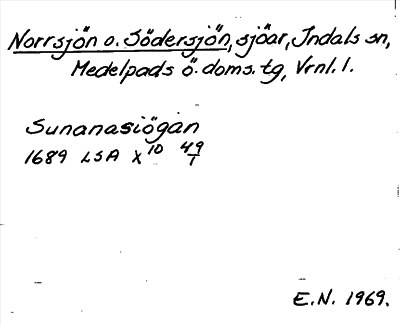 Norrsjön o. Södersjön, sjöar, Indals sn,
Medelpads ö. doms. tg, Vrnl. l.
Sunanasiögan
1689 LSA X 10 49/1
E.N. 1969.